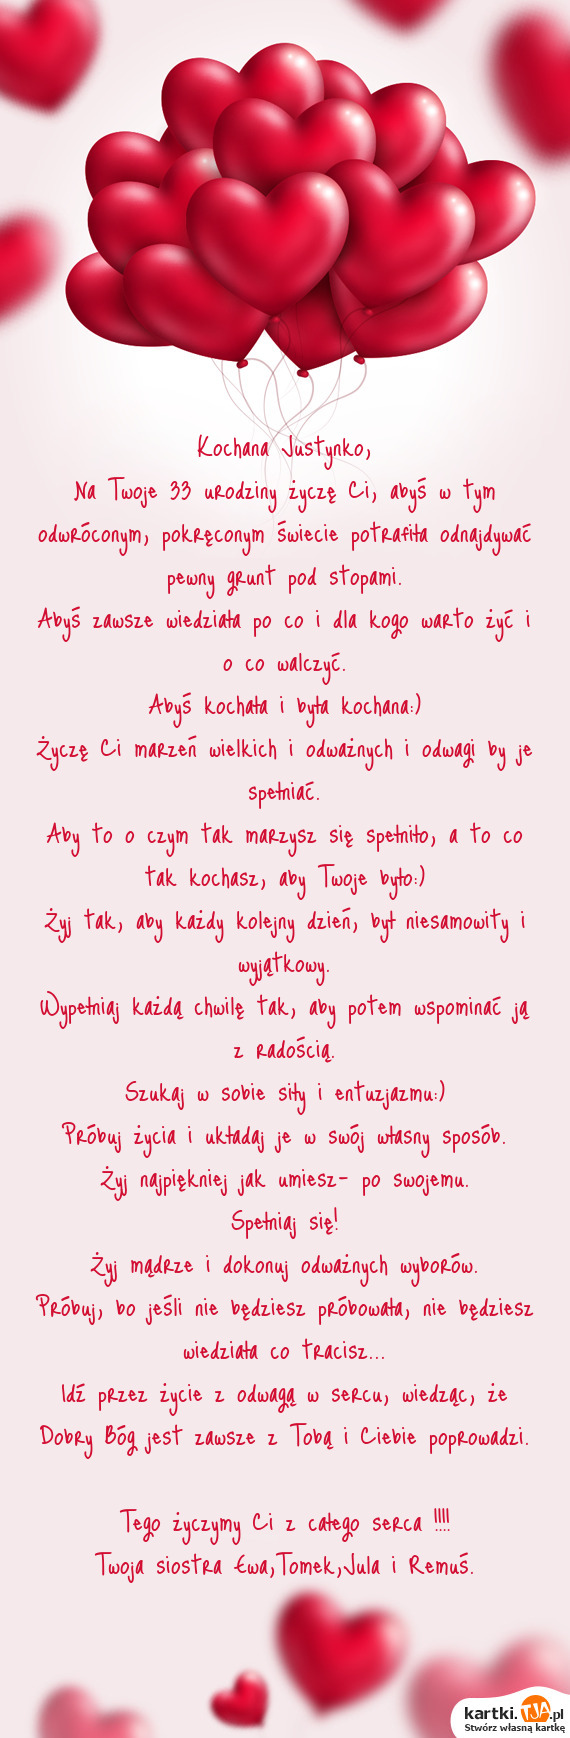 Kochana Justynko,
Na Twoje 33 urodziny życzę Ci, abyś w tym
odwróconym, pokręconym świecie potrafiła odnajdywać
pewny grunt pod stopami.
Abyś zawsze wiedziała po co i dla kogo warto żyć i
o co walczyć.
Abyś kochała i była kochana:)
Życzę Ci marzeń wielkich i odważnych i odwagi by je
spełniać.
Aby to o czym tak marzysz się spełniło, a to co
tak kochasz, aby Twoje było:)
Żyj tak, aby każdy kolejny dzień, był niesamowity i
wyjątkowy.
Wypełniaj każdą chwilę tak, aby potem wspominać ją
z radością.
Szukaj w sobie siły i entuzjazmu:)
Próbuj życia i układaj je w swój własny sposób.
Żyj najpiękniej jak umiesz- po swojemu.
Spełniaj się!
Żyj mądrze i dokonuj odważnych wyborów.
Próbuj, bo jeśli nie będziesz próbowała, nie będziesz
wiedziała co tracisz...
Idź przez życie z odwagą w sercu, wiedząc, że
Dobry Bóg jest zawsze z Tobą i Ciebie poprowadzi.
Tego życzymy Ci z całego serca !!!!
Twoja siostra Ewa,Tomek,Jula i Remuś.
kartki.TJA.pl
Stwórz własną kartkę